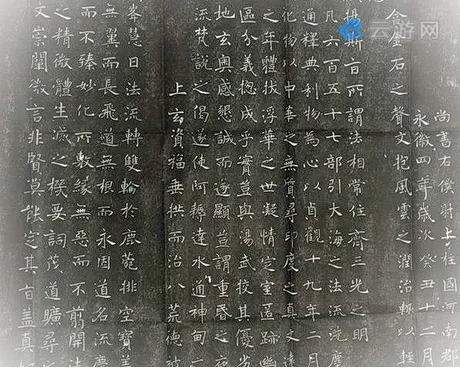 文崇闡微言非賢莫能定其旨蓋真
之精微體生滅之機要詞茂道曠尋
而不臻妙化所敷緣無惡而不翦開法
無翼而長飛道無根而永固道名流慶
峯慧日法流轉雙輪於鹿苑排空寶蓋
上玄資福垂拱而治八荒德被
流梵說之偈遂使阿耨達水通神甸之
地玄奧感懇誠而遂顯豈謂重昏之夜
區分義揔成乎實豈與湯武校其優劣
之年體拔浮華之世凝情定室匿跡幽
化物以中華之無質尋印度之真文遠
通釋典利物為心以貞觀十九年二月
凡六百五十七部引大海之法流洗塵
揚斯旨所謂法相常住齊三光之明
含金石之聲文抱風雲之潤治輒以輕
永徽四年歲次癸丑十二月
尚書右僕射上柱國河南郡
云游网